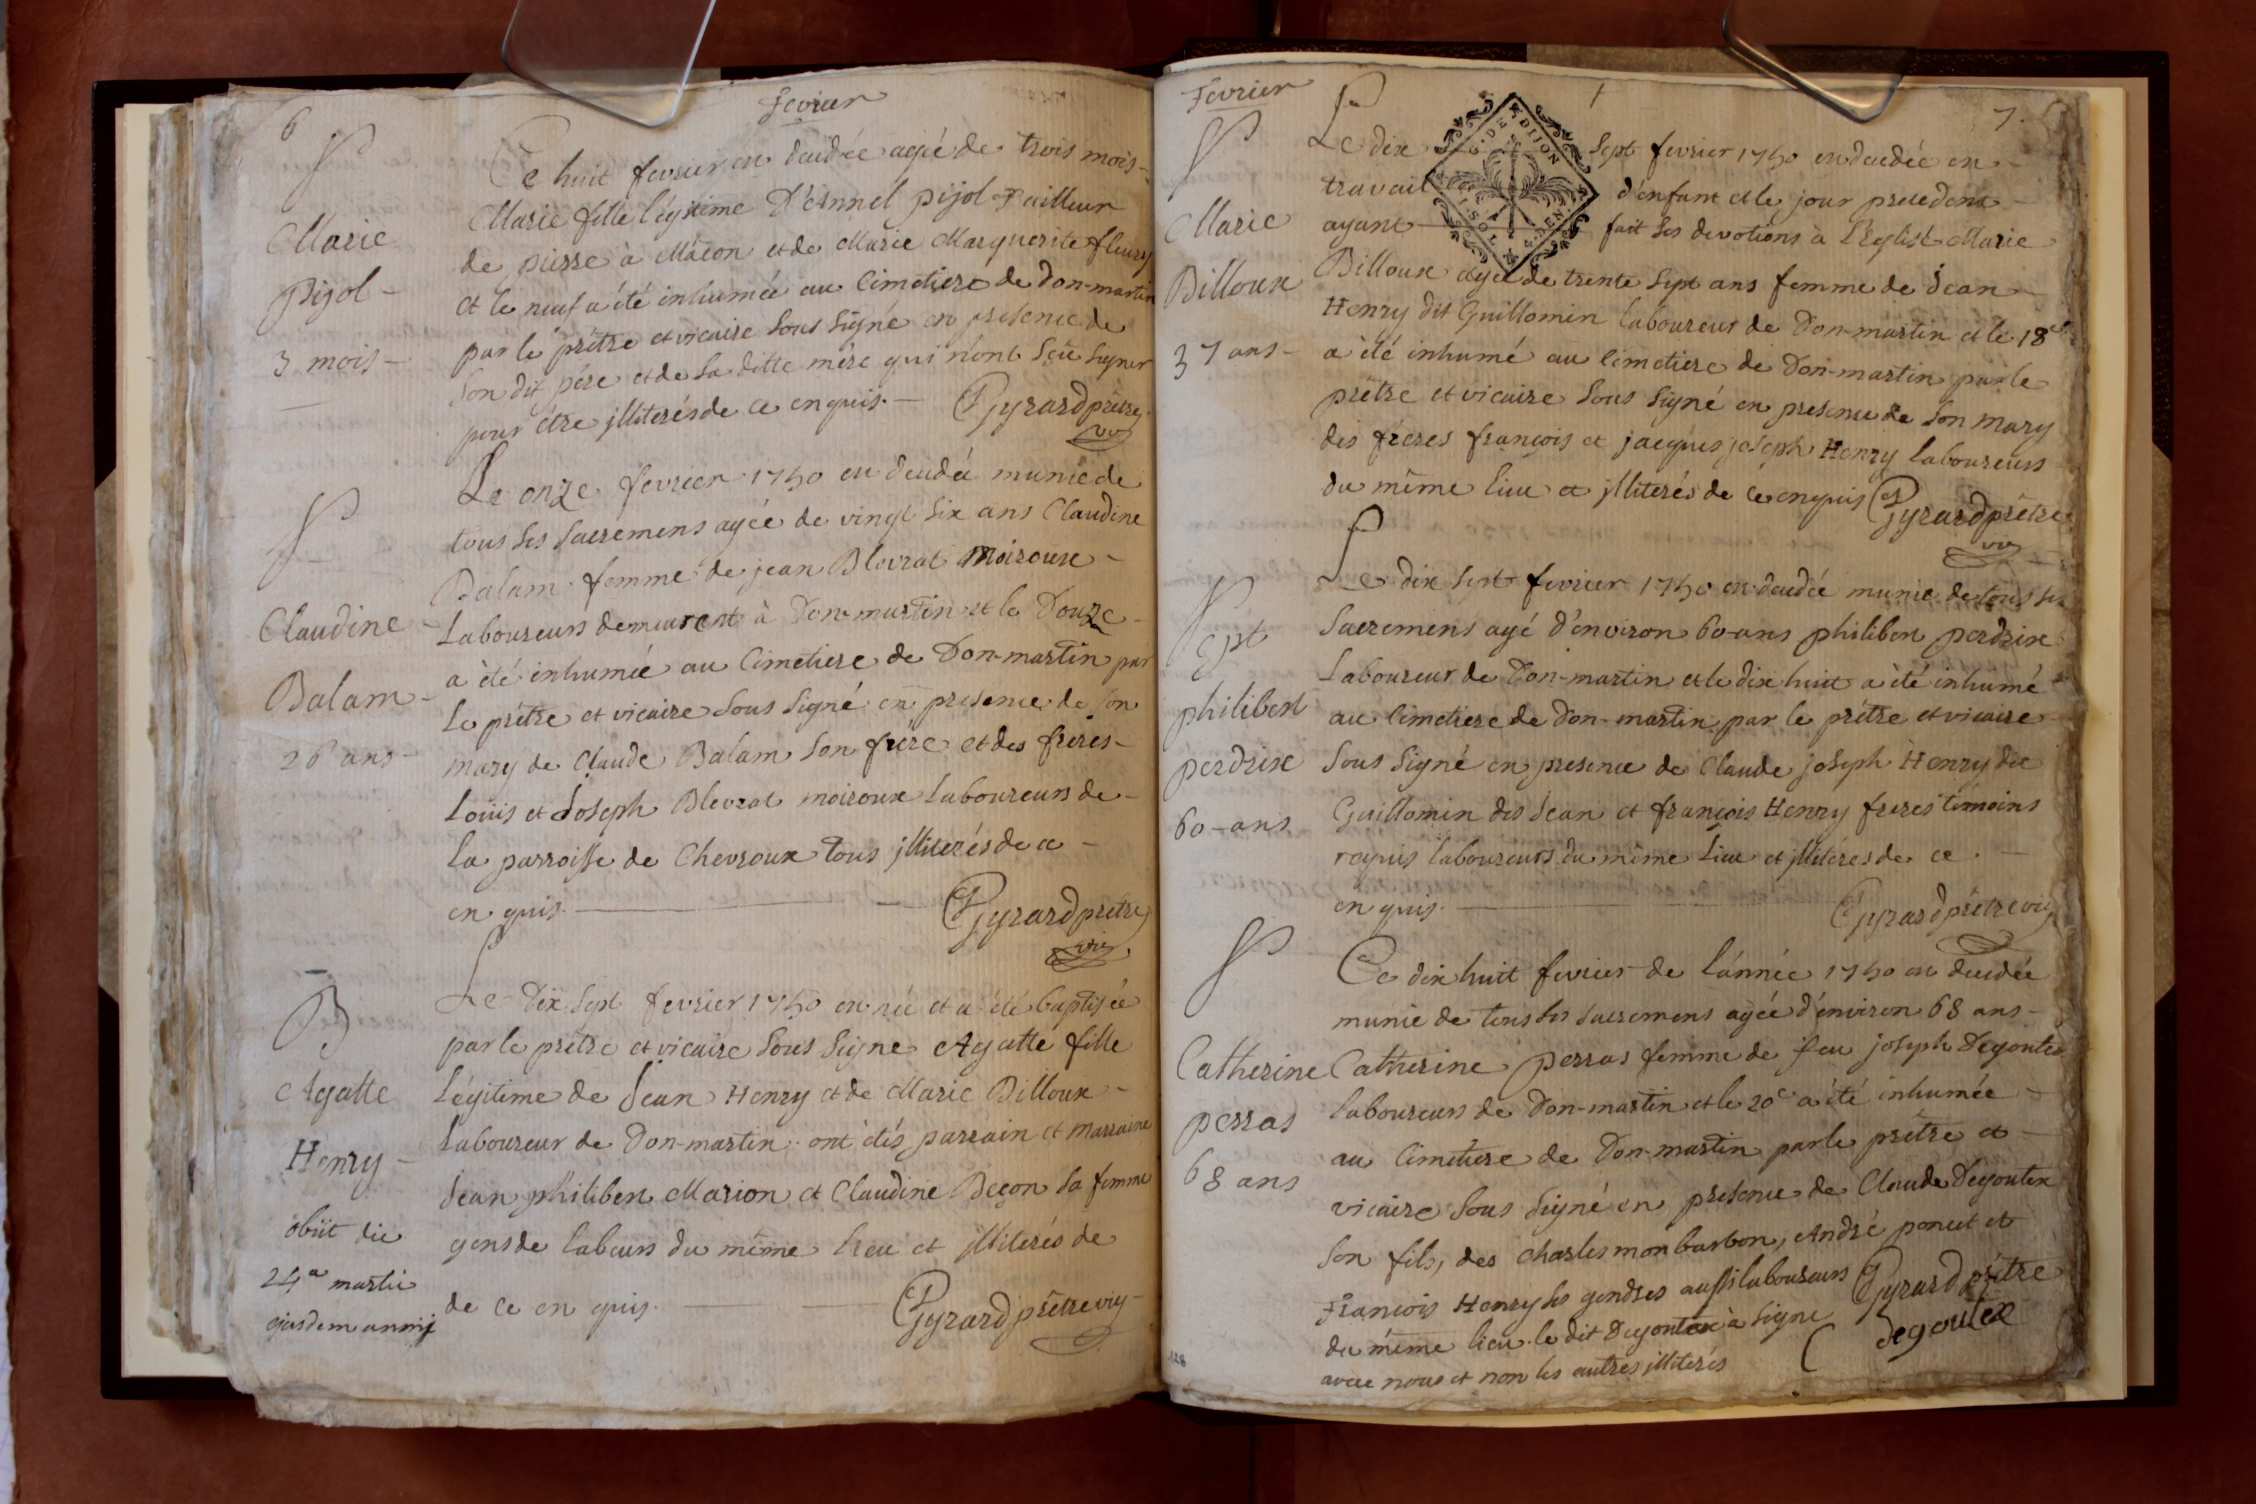 6
fevrier
S
Marie
Pijol -
3 mois -
Ce huit fevrier en decedée agée de trois mois -
Marie fille légitime D'émmel pijol Tailleur
de pierre à Mâcon et de Marie Marguerite fleury
et le neuf a été inhumée au Cimetiere de Don-martin
par le prêtre et vicaire Sous Signé en presence de
Son dit pére et de la ditte mére qui n'ont Sçu Signer
pour être jlliterés de ce enquis. - Gyrard prêtre
vic
S
Claudine -
Balam -
26 ans -
Le onze fevrier 1750 en decedée munie de
tous ses Sacremens agée de vingt Six ans Claudine
Balam femme de jean Blevrat Moiroux -
Laboureurs demeurent à Don-martin et le Douze -
a été inhumée au Cimetiere de Don-martin par
le prêtre et vicaire Sous Signé en presence de Son
mary de Claude Balam Son frére et des fréres -
Loüis et Joseph Blevrat moiroux Laboureurs de -
La parroisse de Chevroux tous jlliterés de ce -
en quis. - Gyrard prêtre
vic
B
Agatte
Henry -
obiit die
24a martii
ejusdem annij
Le Dix Sept fevrier 1750 en née et a été baptisée
par le prêtre et vicaire Sous Signé Agatte fille
Légitime de Jean Henry et de Marie Billoux -
Laboureur de Don-martin. ont étés parrain et marraine
Jean philibert Marion et Claudine Beçon Sa femme
gens de Labeurs du même Lieu et jlliterés de
de ce en quis. - Gyrard prêtre vic
Fevrier
7.
S
Marie
Billoux
37 ans -
G. DE DIJON
Le dix Sept fevrier 1750 en decedée en -
travail d'enfant et le jour precedent -
ayant fait Ses devotions à L'église Marie
Billoux agée de trente Sept ans femme de Jean -
Henry dit Guillomin Laboureur de Don-martin et le 18e
a été inhumé au Cimetiere de Don-martin par le
prêtre et vicaire Sous Signé en presence de Son mary
des fréres françois et jacques joseph Henry Laboureurs
du même lieu et jlliterés de ce enquis Gyrard prêtre
vic
S
philibert
perdrix
60 - ans
Le dix Sept fevrier 1750 en decedée munie de tous ses
Sacremens agé d'environ 60 ans philibert perdrix
Laboureur de Don-martin et le dix huit a été inhumé
au Cimetiere de Don-martin par le prêtre et vicaire
Sous Signé en presence de Claude joseph Henry dit
Guillomin des Jean et françois Henry freres témoins
requis Laboureurs du même Lieu et jlliterés de ce. -
en quis. - Gyrard prêtre vic
S
Catherine
perras
68 ans
Ce dix huit fevrier de L'année 1750 en decedée
munie de tous ses Sacremens agée d'environ 68 ans -
Catherine perras femme de feu joseph Degoutex
Laboureurs de Don-martin et le 20e a été inhumée -
au Cimetiere de Don-martin par le prêtre et -
vicaire Sous Signé en presence de Claude Degoutex
Son fils, des Charles monbarbon, André poncet et
François Henry Ses gendres aussi Laboureurs Gyrard prêtre
du même lieu. le dit Degoutex à Signé Degoutex
avec nous et non les autres jlliterés
128